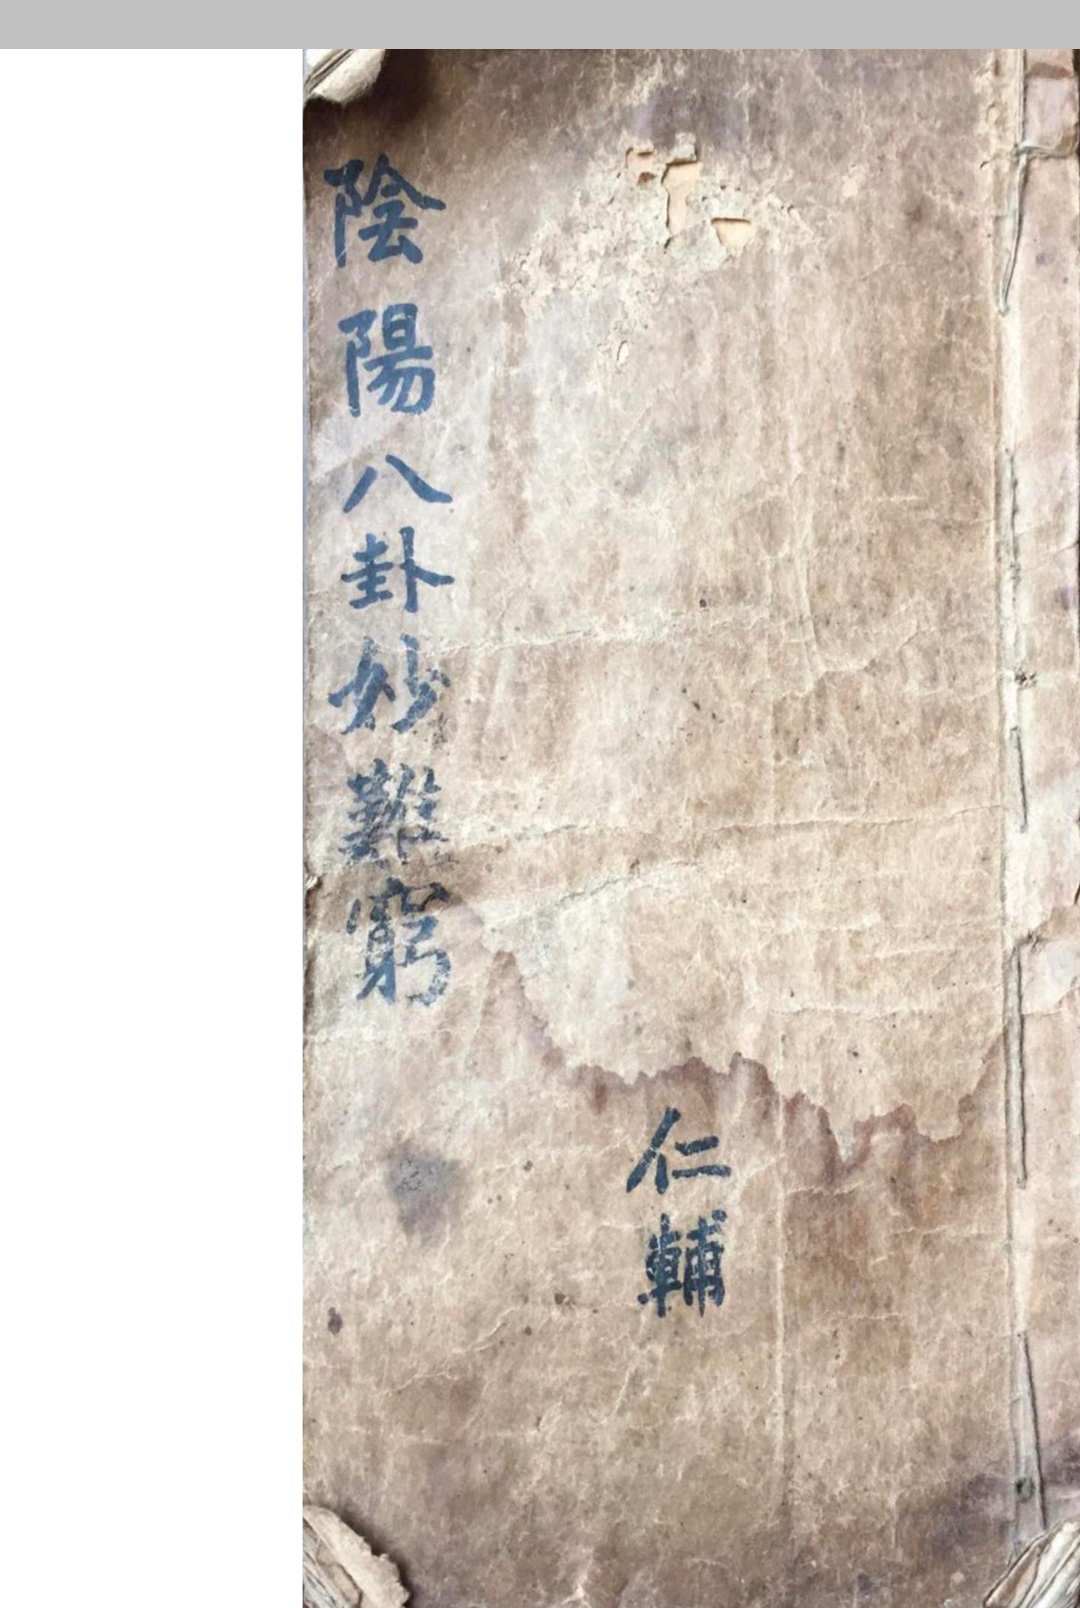 陰陽八卦妙難窮
仁輔